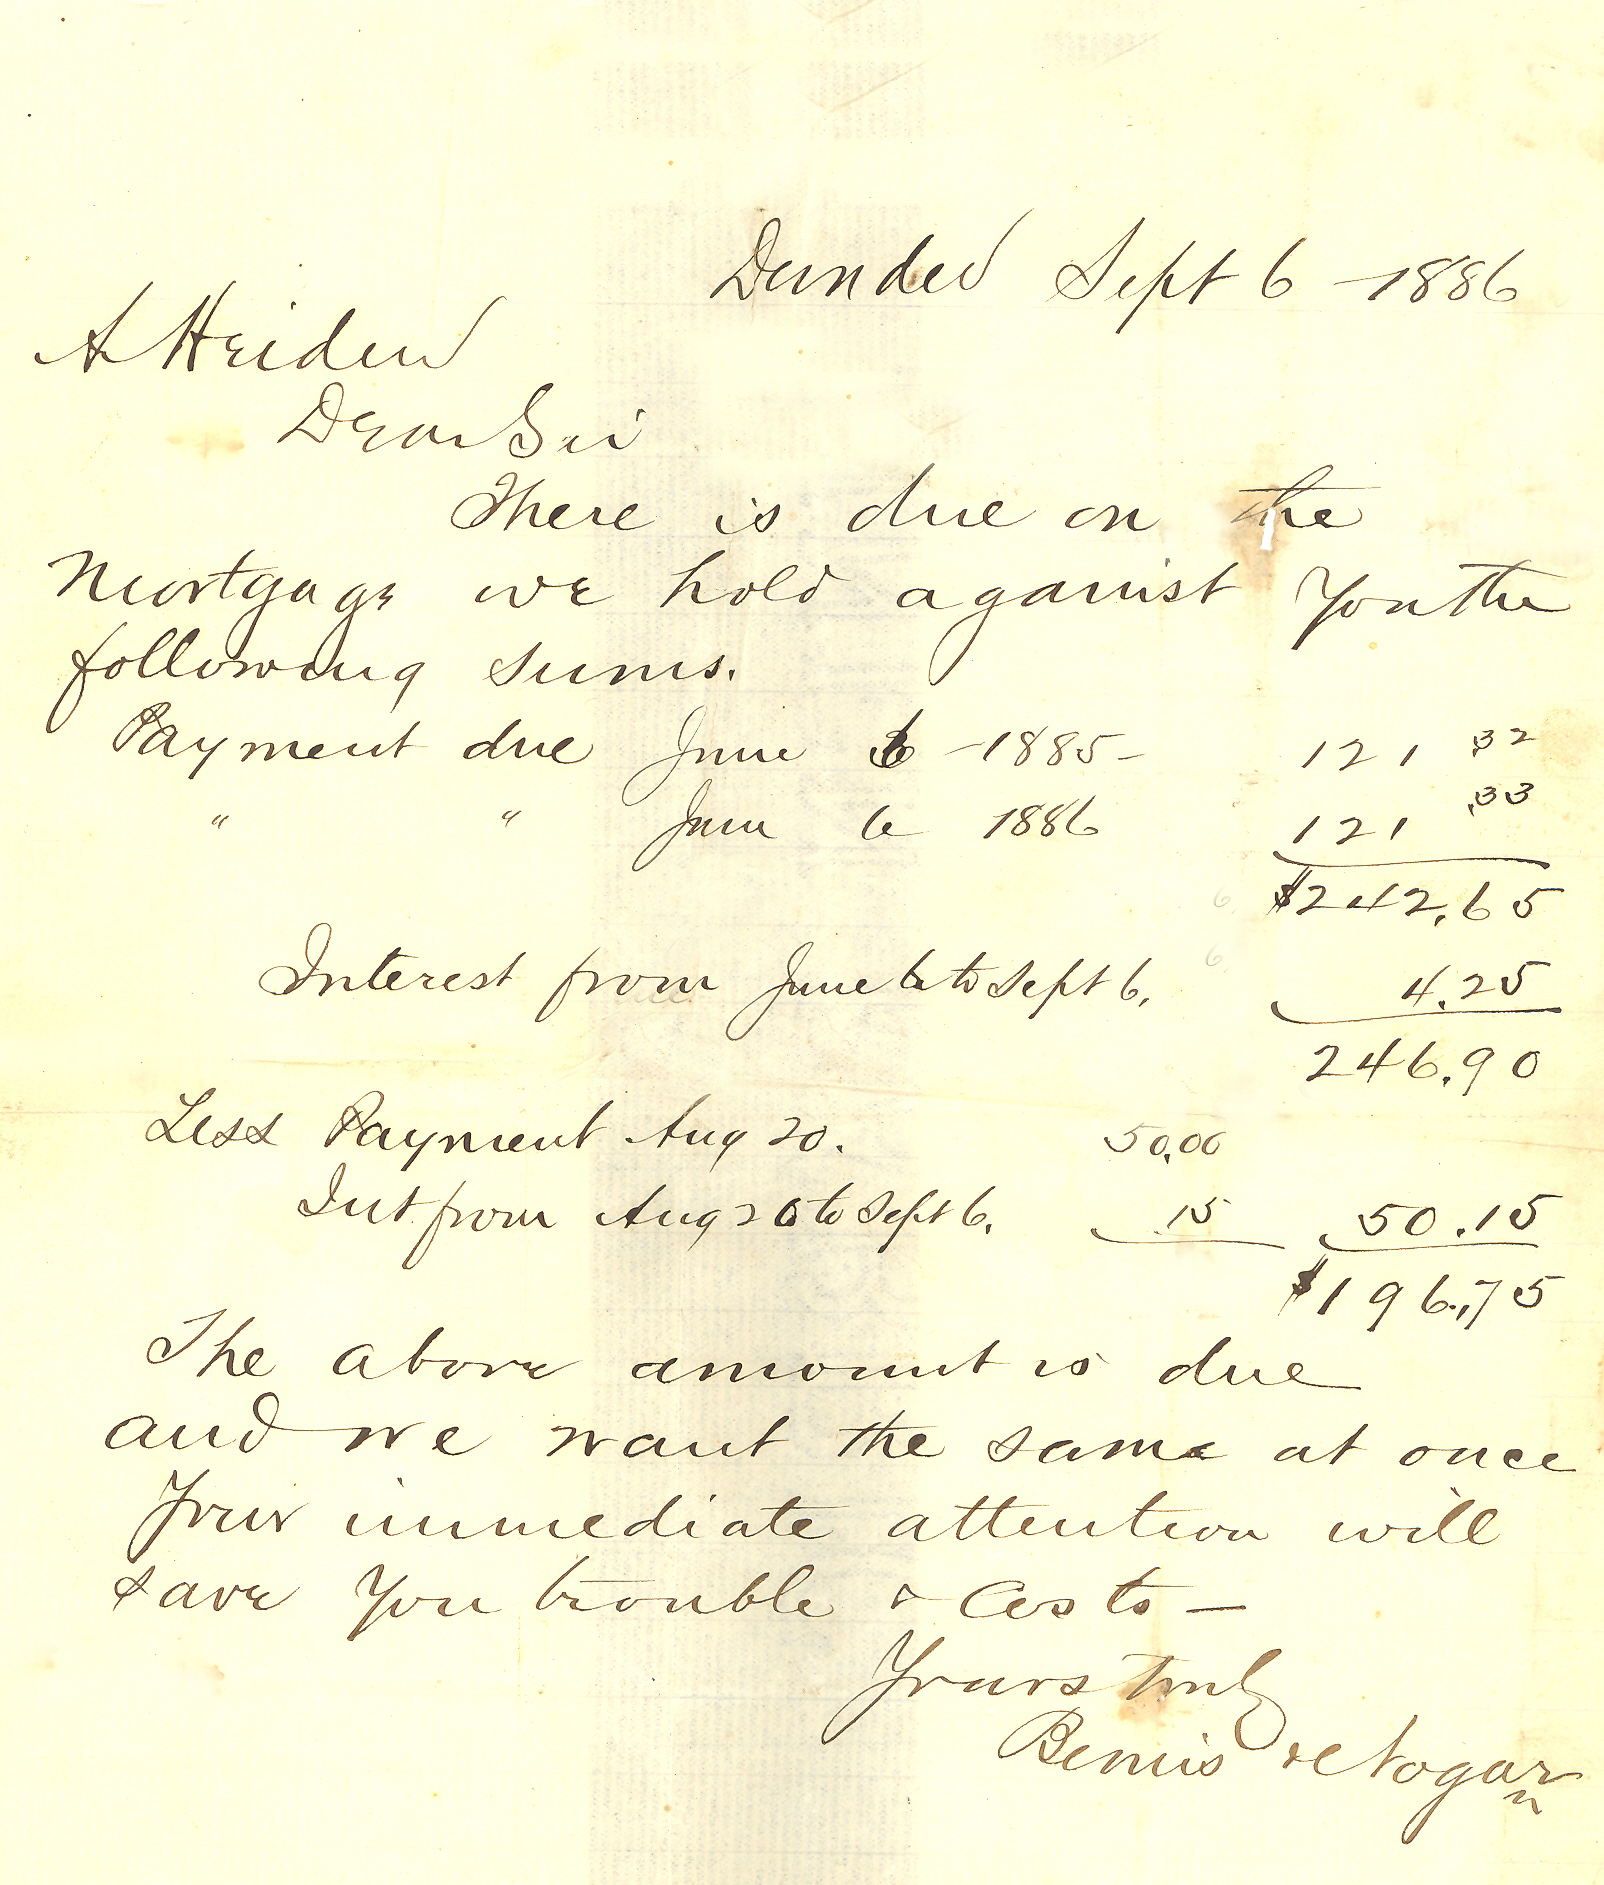 Dundee Sept 6 - 1886
A Heiden
Dear Sir
There is due on the
Mortgage we hold against You the
following sums.
Payment due June 6 - 1885 - 121 .32
" " June 6 1886 121 .33
$242.65
Interest from June 6 to Sept 6. 4.25
246.90
Less Payment Aug 20. 50.00
Int from Aug 20 to Sept 6. 15 50.15
$196.75
The above amount is due
and we want the same at once
Your immediate attention will
save You trouble & Costs -
Yours truly
Bemis &